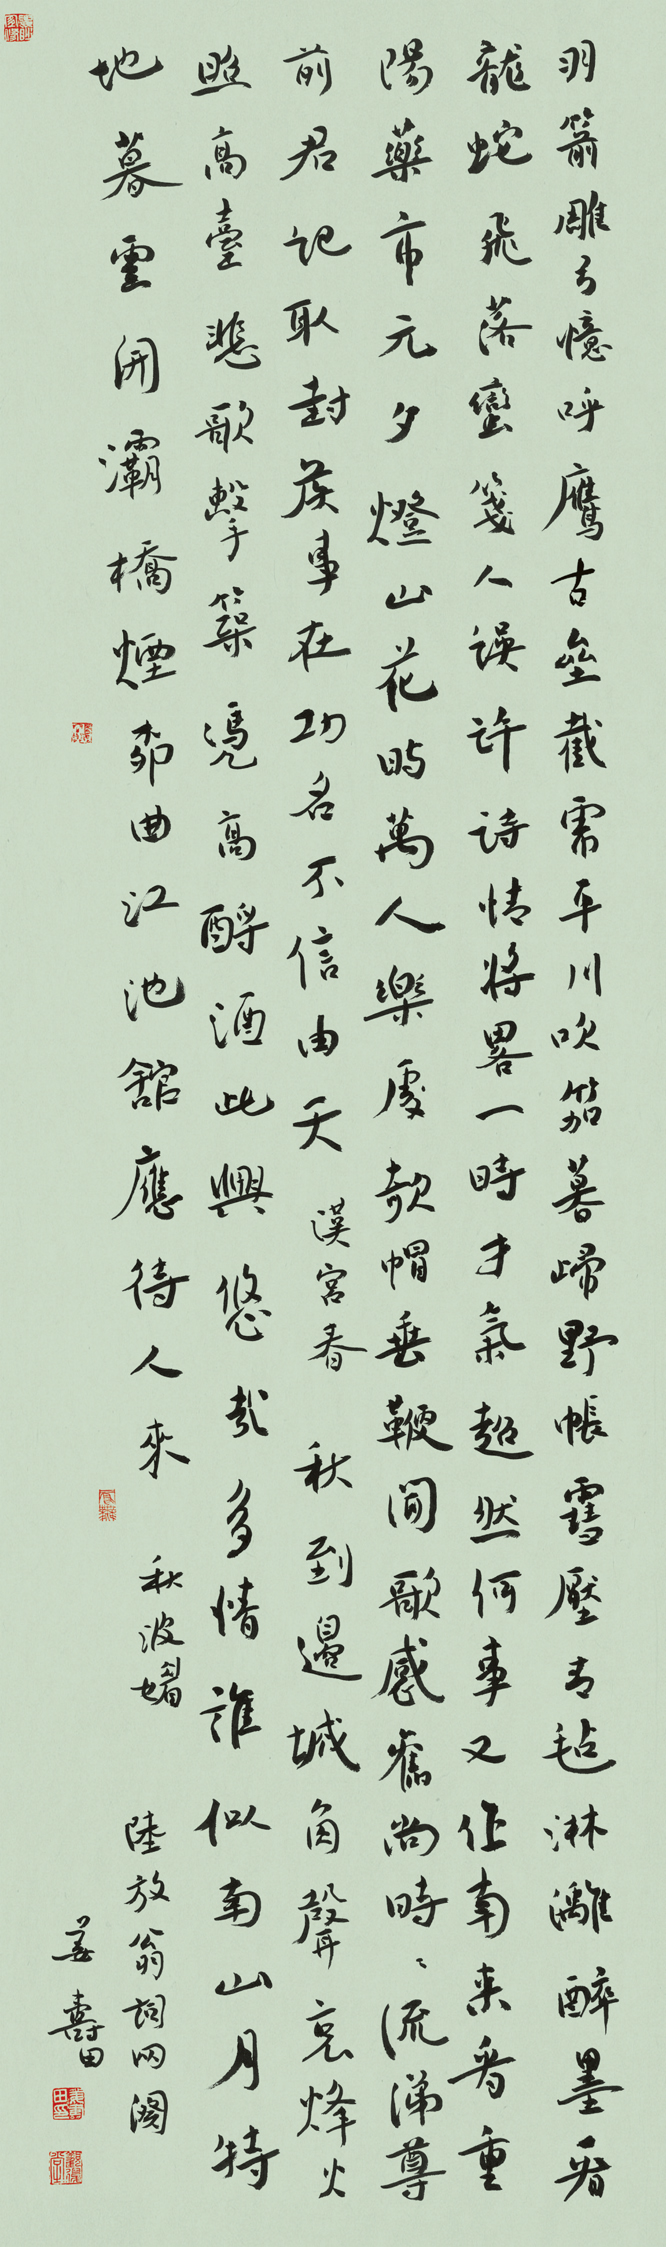 羽箭雕弓憶呼鷹古壘截虎平川吹笳暮歸野帳雪壓青氈淋灕醉墨看
龍蛇飛落蠻箋人誤許詩情將畧一時才氣超然何事又作南來看重
陽藥市元夕燈山花時萬人樂處欹帽垂鞭聞歌感舊尚時〻流涕尊
前君記取封侯事在功名不信由天 漢宮春 秋到邊城角聲哀烽火
照高臺悲歌擊築凴高酹酒此興悠哉多情誰似南山月特
地暮雲開灞橋煙柳曲江池館應待人來 秋波媚 陸放翁詞两闋
姜壽田